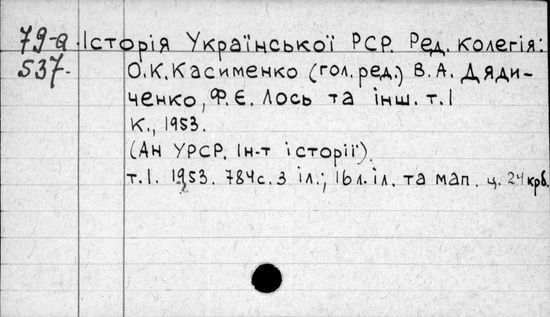 79-а Історія Української РСР. Ред. колегія:
537. О.К. Касименко (гол. ред.) В. А. Дяди-
ченко, Ф. Є. Лось та інш. т. І
К., 1953.
(Ан УРСР. Ін-т історії).
т. І. 1953. 784с. з іл.; 16л. іл. та мап. ц. 24 крб.